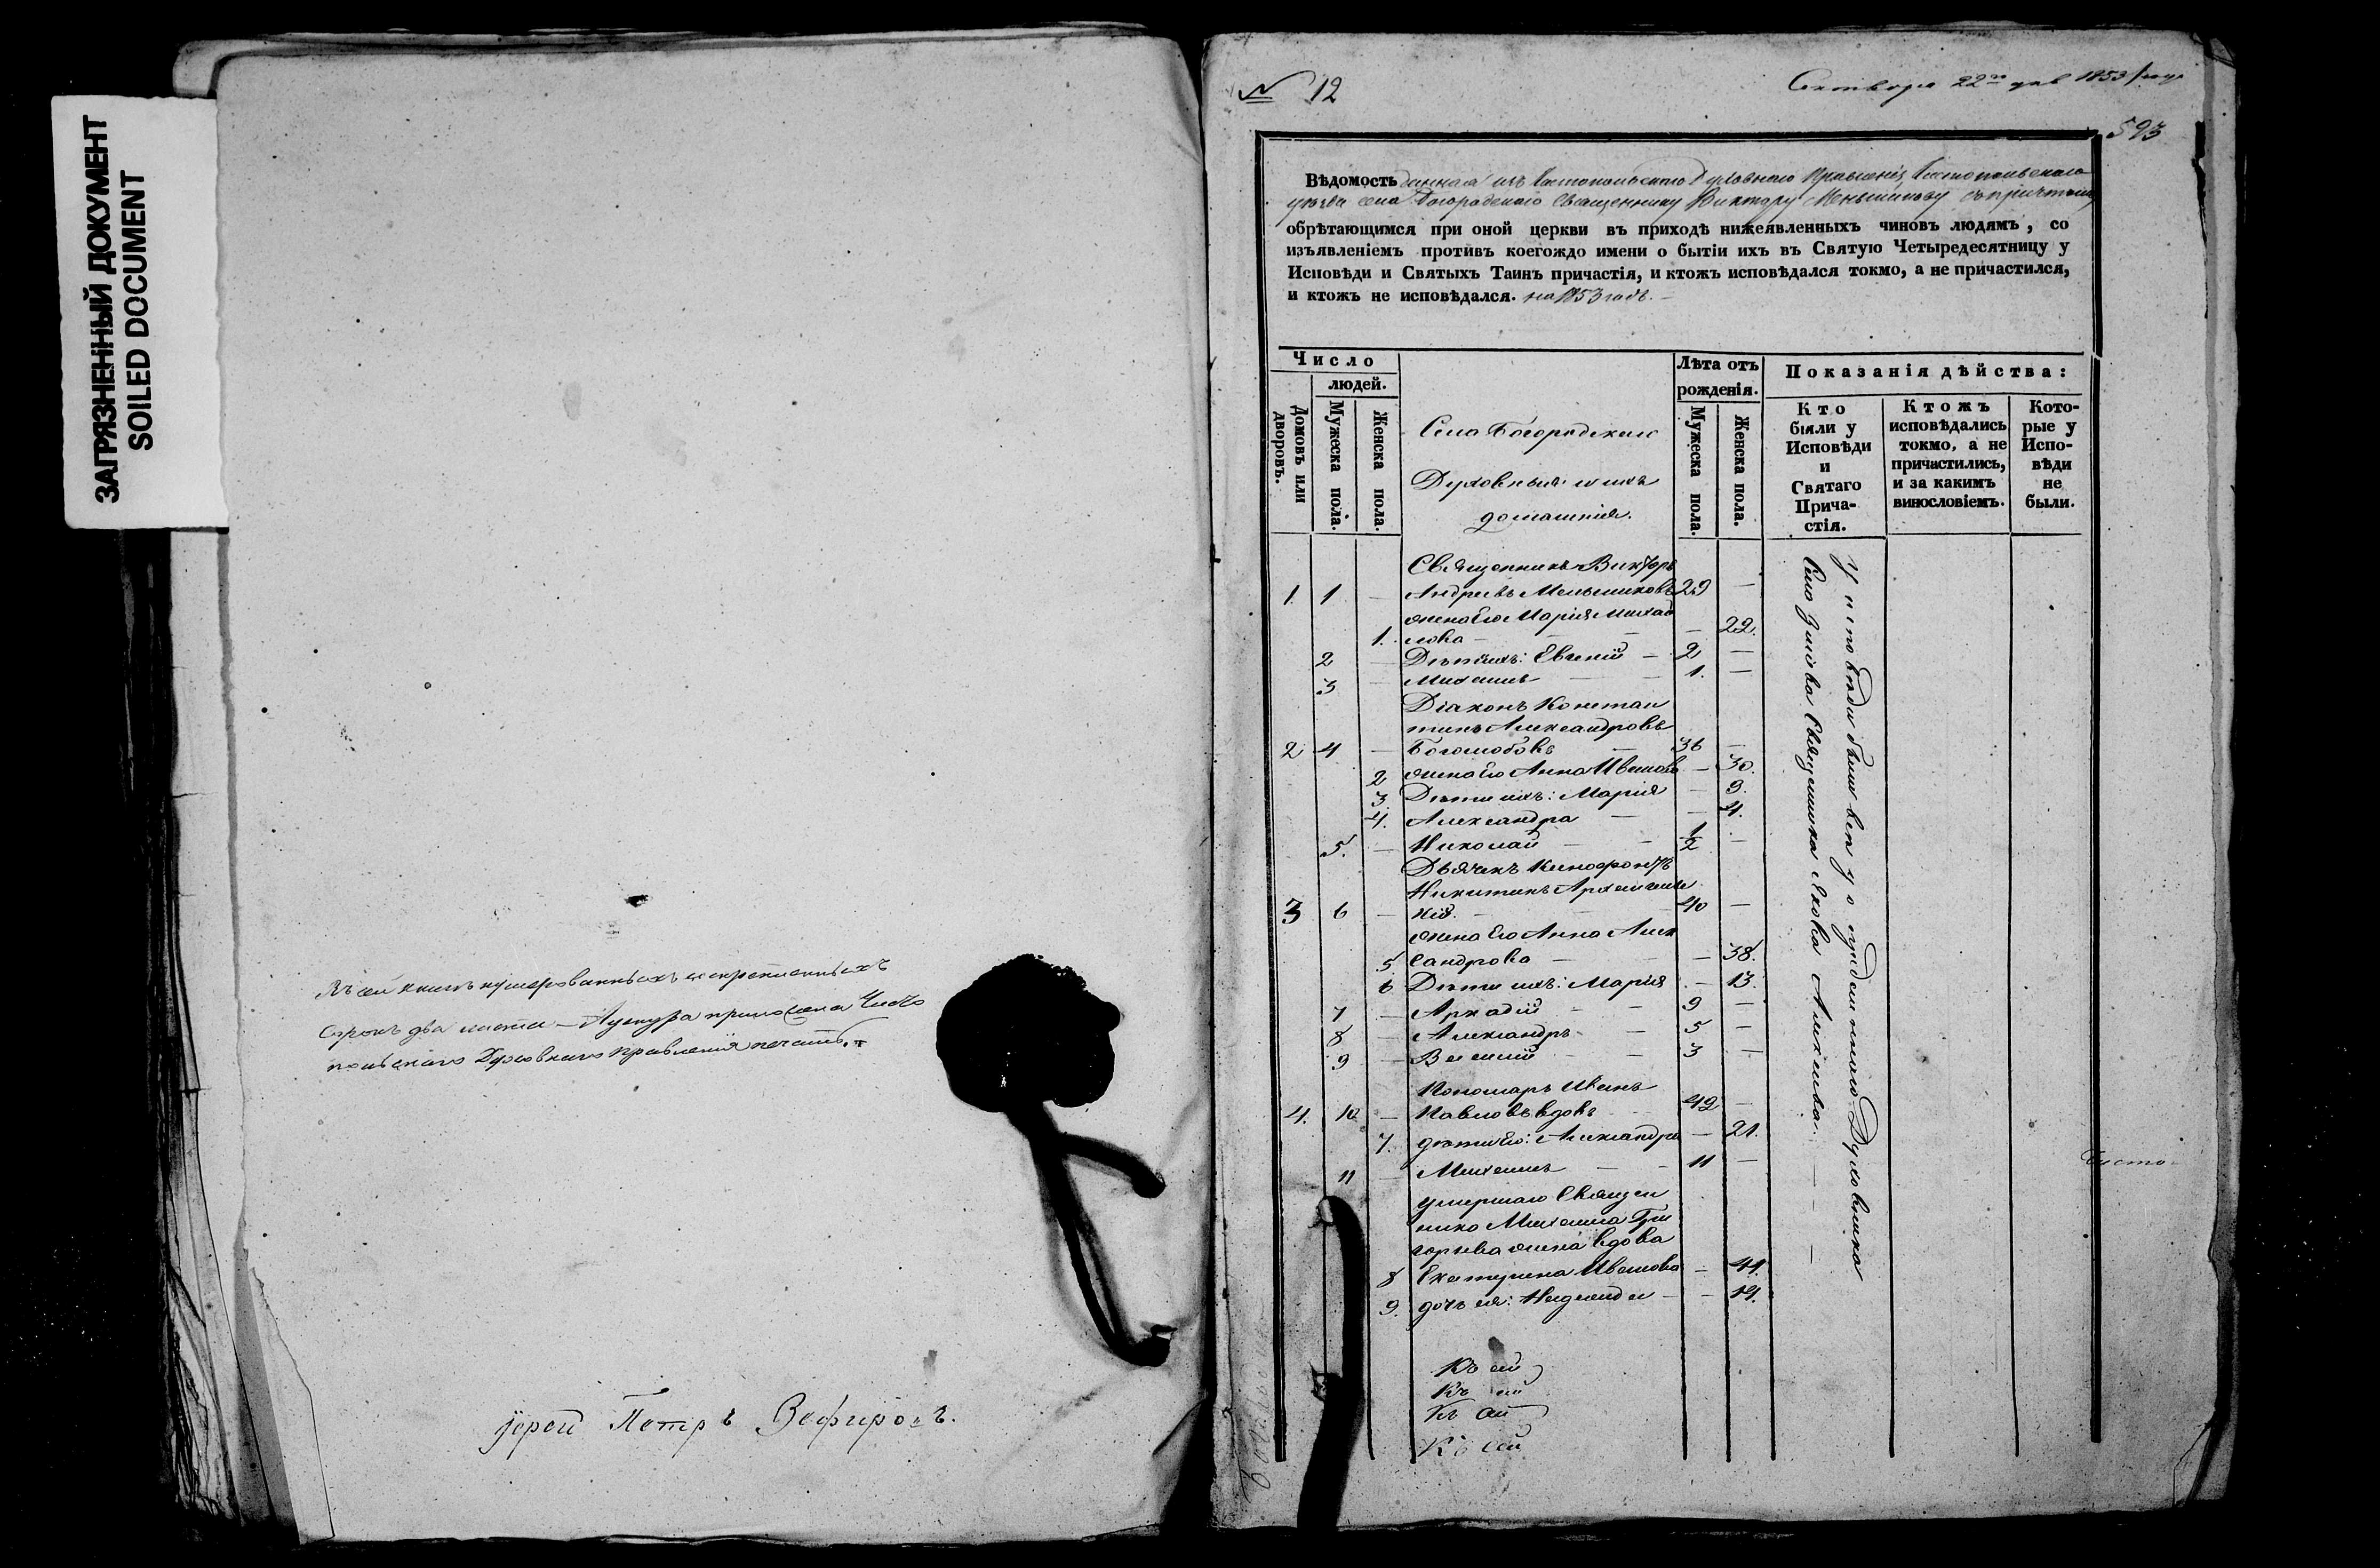 ЗАГРЯЗНЕННЫЙ ДОКУМЕНТ
SOILED DOCUMENT
Въ сей книгѣ нумерованныхъ и скрепленныхъ
сорокъ два листа
Духовнаго Правленія печать.
Іерей Петръ Зефировъ.
№ 12
22го 1853 года
593
Вѣдомость данная изъ Чистопольскаго Духовнаго Правленія Чистопольскаго
уѣзда села Богородскаго Священнику Виктору Меньшикову съ причтомъ
обрѣтающимся при оной церкви въ приходѣ нижеявленныхъ чиновъ людямъ, со
изъявленіемъ противъ коегождо имени о бытіи ихъ въ Святую Четыредесятницу у
Исповѣди и Святыхъ Таинъ причастія, и ктожъ исповѣдался токмо, а не причастился,
и ктожъ не исповѣдался. на 1853 годъ.
Число
людей.
Домовъ или дворовъ.
Мужеска пола.
Женска пола.
Села Богородскаго
Духовныя и ихъ
домашнія.
Лѣта отъ
рожденія.
Мужеска пола.
Женска пола.
Показанія дѣйства:
Кто
были у
Исповѣди
и
Святаго
Прича-
стія.
Ктожъ
исповѣдались
токмо, а не
причастились,
и за какимъ
винословіемъ.
Кото-
рые у
Испо-
вѣди
не
были.
Священникъ Викторъ
1. 1 — Андреевъ Меньшиковъ 29 —
жена Его Марія Михай
1. лова — — 22.
2 — Дѣти ихъ: Евгеній — 2 —
3 — Михаилъ — 1. —
Діаконъ Констан
тинъ Александровъ
2 4 — Боголюбовъ — 36 —
2 жена Его Анна Иванова — 30.
3. Дѣти ихъ: Марія — 9.
4. Александра — — 4.
5. — Николай — 1/2 —
Дьячекъ Ксенофонтъ
Никитинъ Архангель
3 6 — скій — 40 —
жена Его Анна Алек
5. сандрова — — 38.
6 Дѣти ихъ: Марія — 13.
7 — Аркадій — 9 —
8 — Александръ — 5 —
9 — Василій — 3 —
Пономарь Иванъ
4. 10 — Павловъ вдовъ 42 —
7. дѣти Его: Александра — 21.
11 — Михаилъ — 11 —
умершаго Священ
ника Михаила Гри
горьева жена вдова
8 Екатерина Иванова — 41.
9. дочь ея: Надежда — 14.
Къ сей
Къ сей
Къ сей
Къ сей
У исповѣди были всѣ у Духовника
Священника Якова Алексѣева.
Чисто-